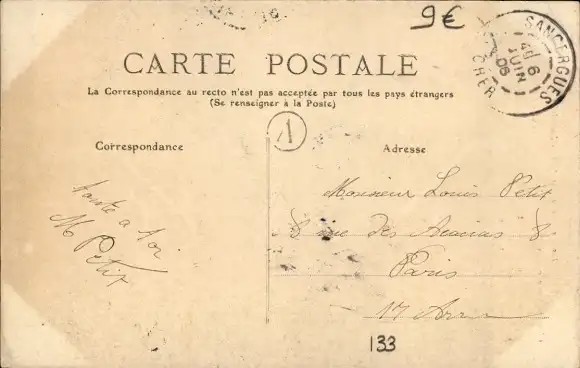 9€
SANCERGUES
6
JUIN
06
CHER
CARTE POSTALE
La Correspondance au recto n'est pas acceptée par tous les pays étrangers
(Se renseigner à la Poste)
1
Correspondance
Adresse
a toi
M Petit
Monsieur Louis Petit
8 rue des Acacias 8
Paris
17 Arr
133